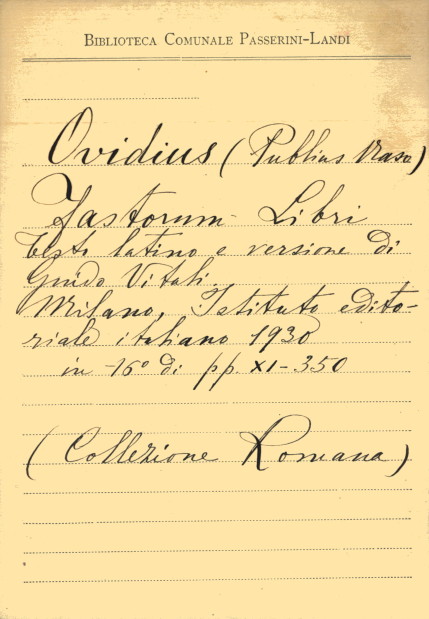 BIBLIOTECA COMUNALE PASSERINI-LANDI
Ovidius (Publius Naso)
Fastorum Libri
Testo latino e versione di
Guido Vitali.
Milano, Istituto edito-
riale italiano 1930
in -16° di pp. XI-350
(Collezione Romana)